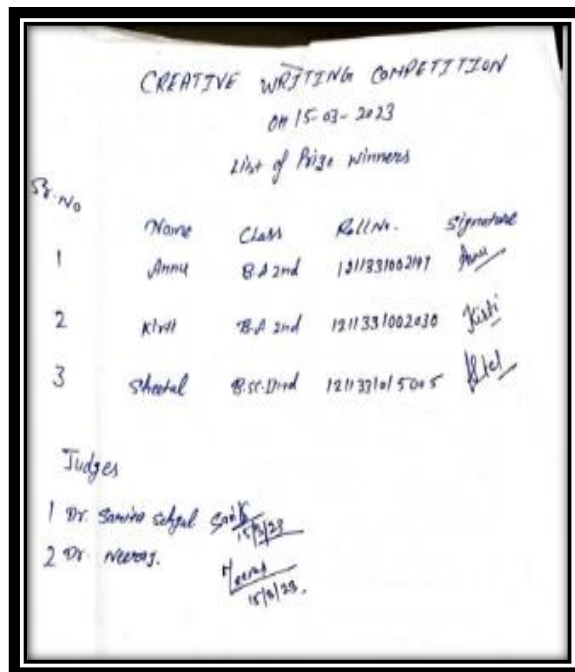 CREATIVE WRITING COMPETITION
on 15-03-2023
List of Prize winners
Sr. No Name Class Roll No. Signature
1 Annu B.A 2nd Annu
2 B.A 2nd 1211331002030 Kirti
3 Sheetal 1211331015005
Judges
1 Dr. Sehgal
15/3/23
2 Dr. Neeraj. Neeraj
15/3/23.